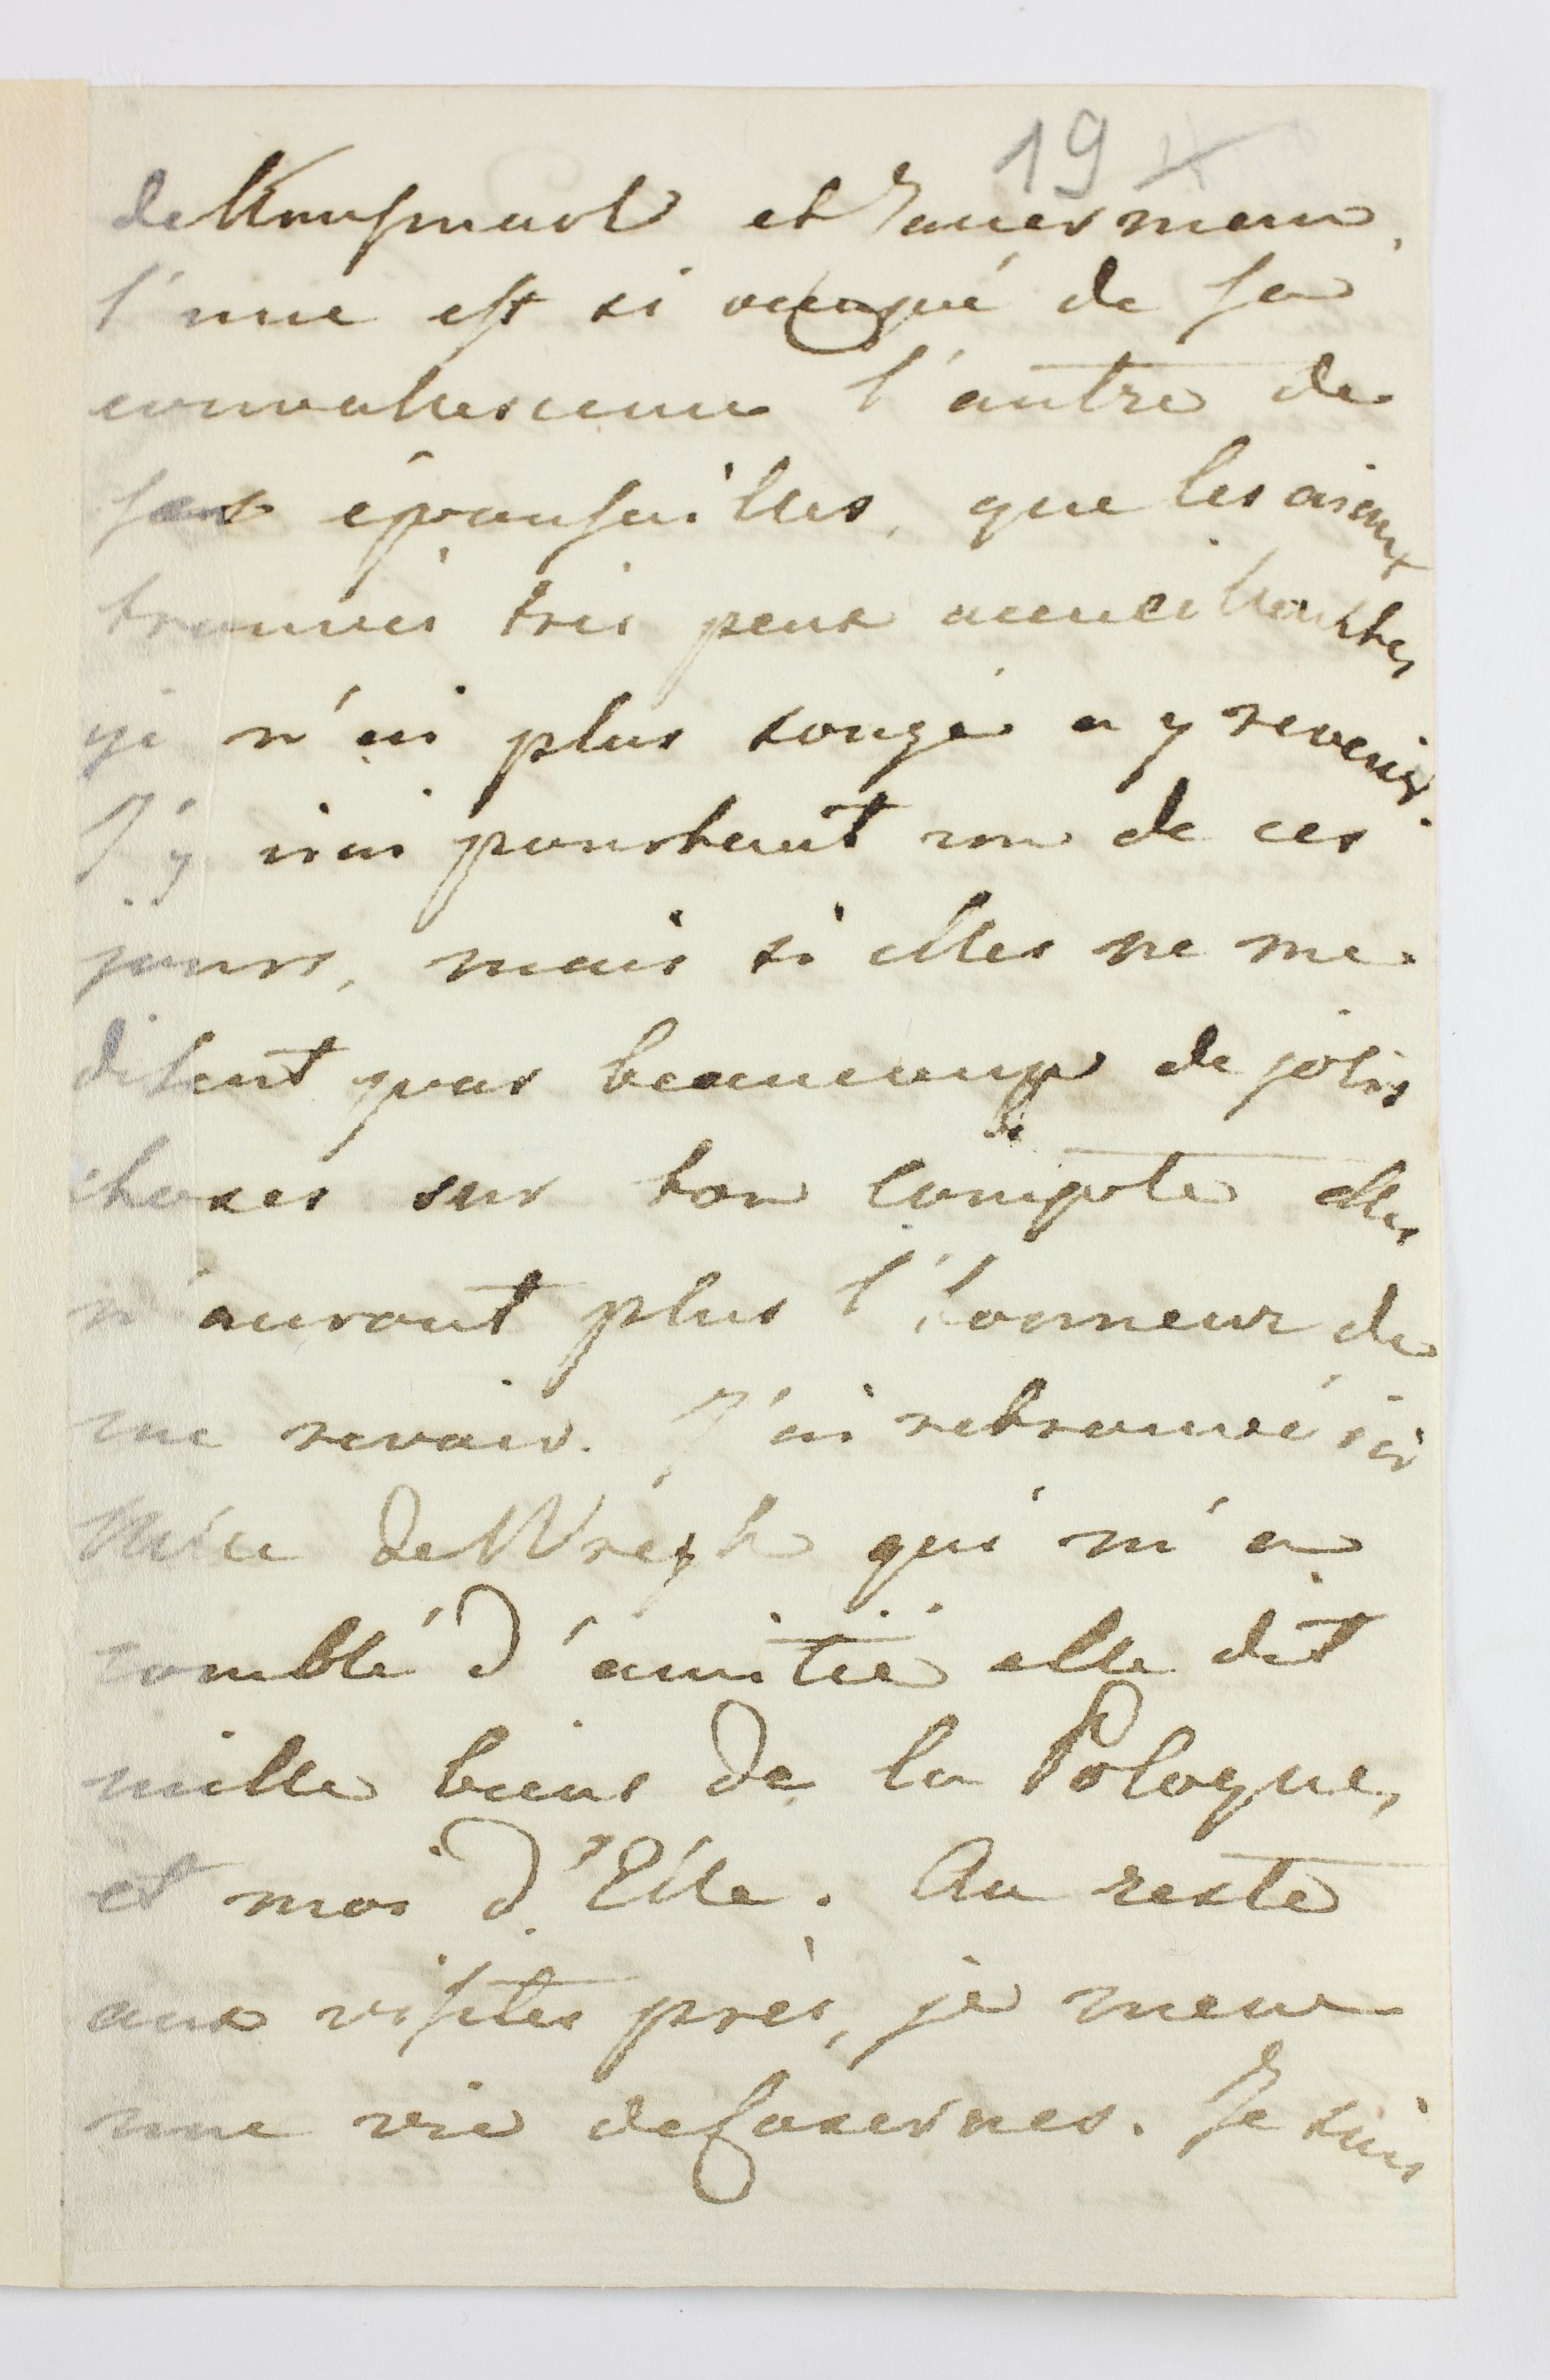 19
et
l'une est si occupé de sa
convallescence l'autre de
ses épousailles, que les aiant
trouvés très peux accueillantes
j'e n'ai plus songé a y revenir.
J'y irai pourtant un de ces
jours, mais si elles ne me
disent pas beaucoup de jolis
choses sur ton compte elles
n'auront plus l'honneur de
me revoir. J'ai retrouvé ici
qui m'a
comblé d'amitié elle dit
mille biens de la Pologne,
et moi d'Elle. Au reste
aux visites près, je mene
une vie de casernes. Je suis